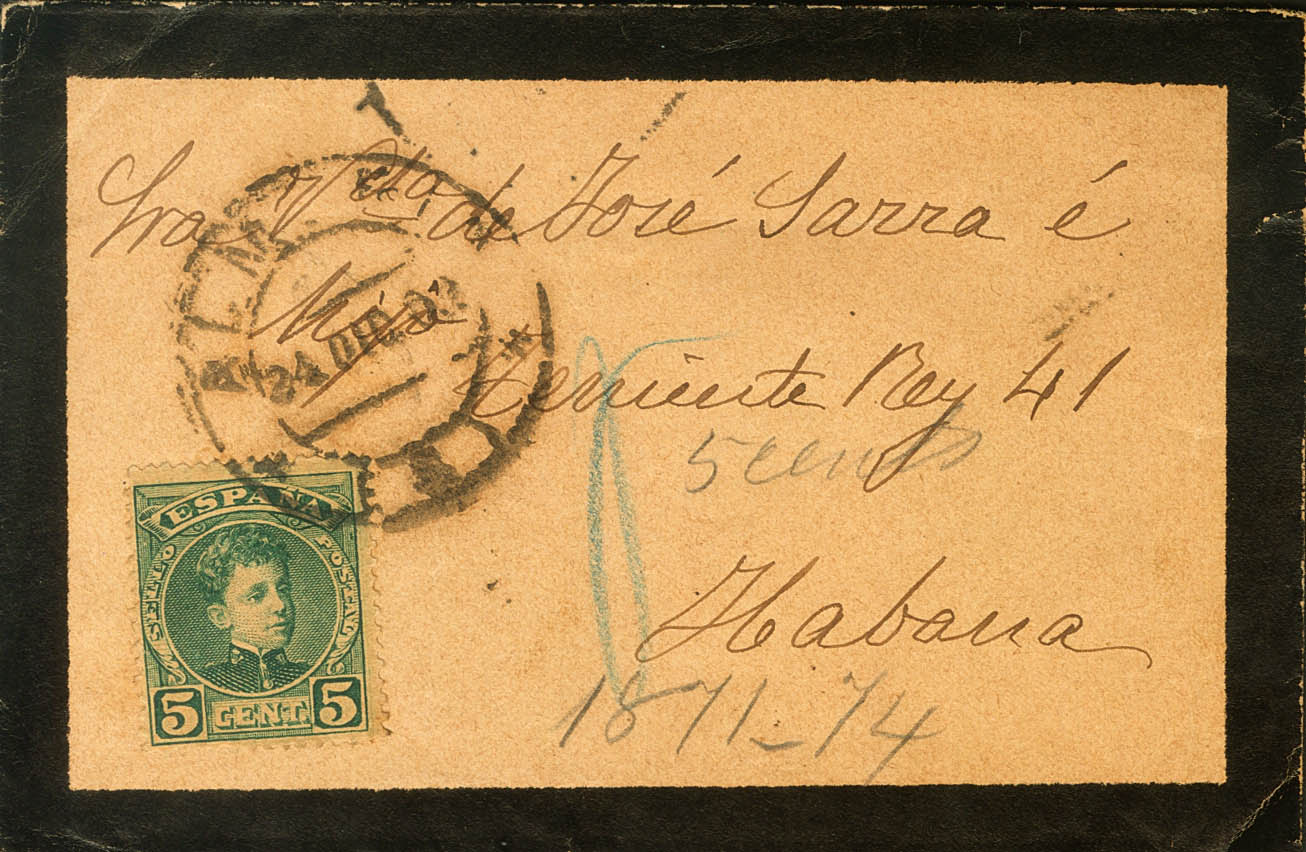 Sra V^da de José Sarra é
Hijo
Teniente Rey 41
5 cents
Habana
1871-74
24 DIC 02
ESPAÑA
SELLO POSTAL
5 CENT. 5